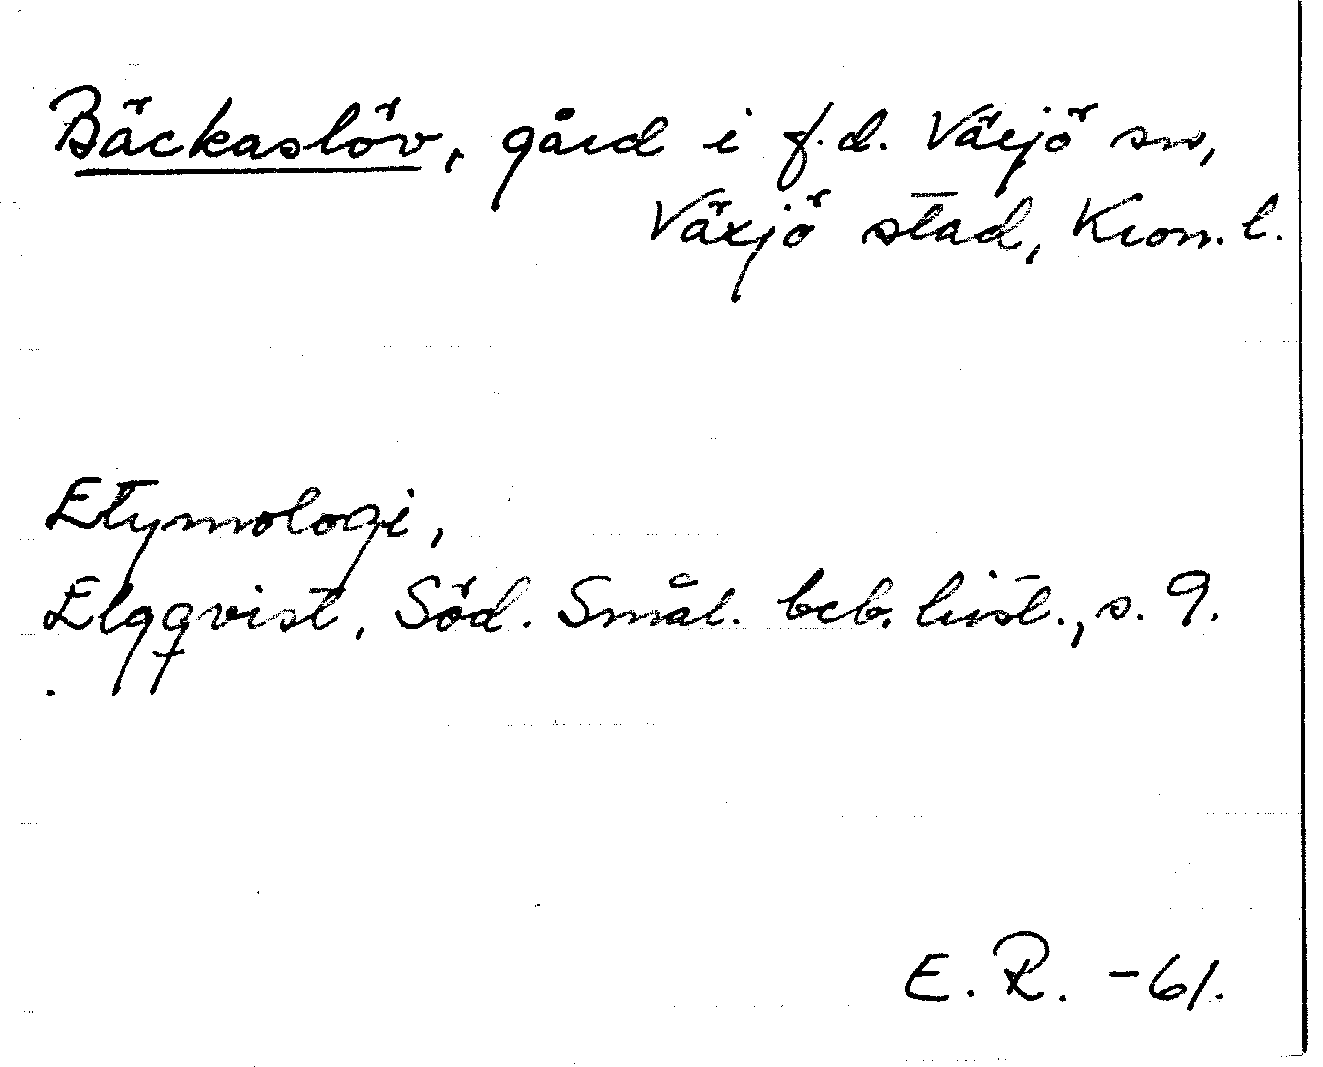 Bäckaslöv, gård i f.d. Växjö sn,
Växjö stad, Kron. l.
Etymologi,
Elgqvist, Söd. Smål. beb. hist., s. 9.
E. R. -61.